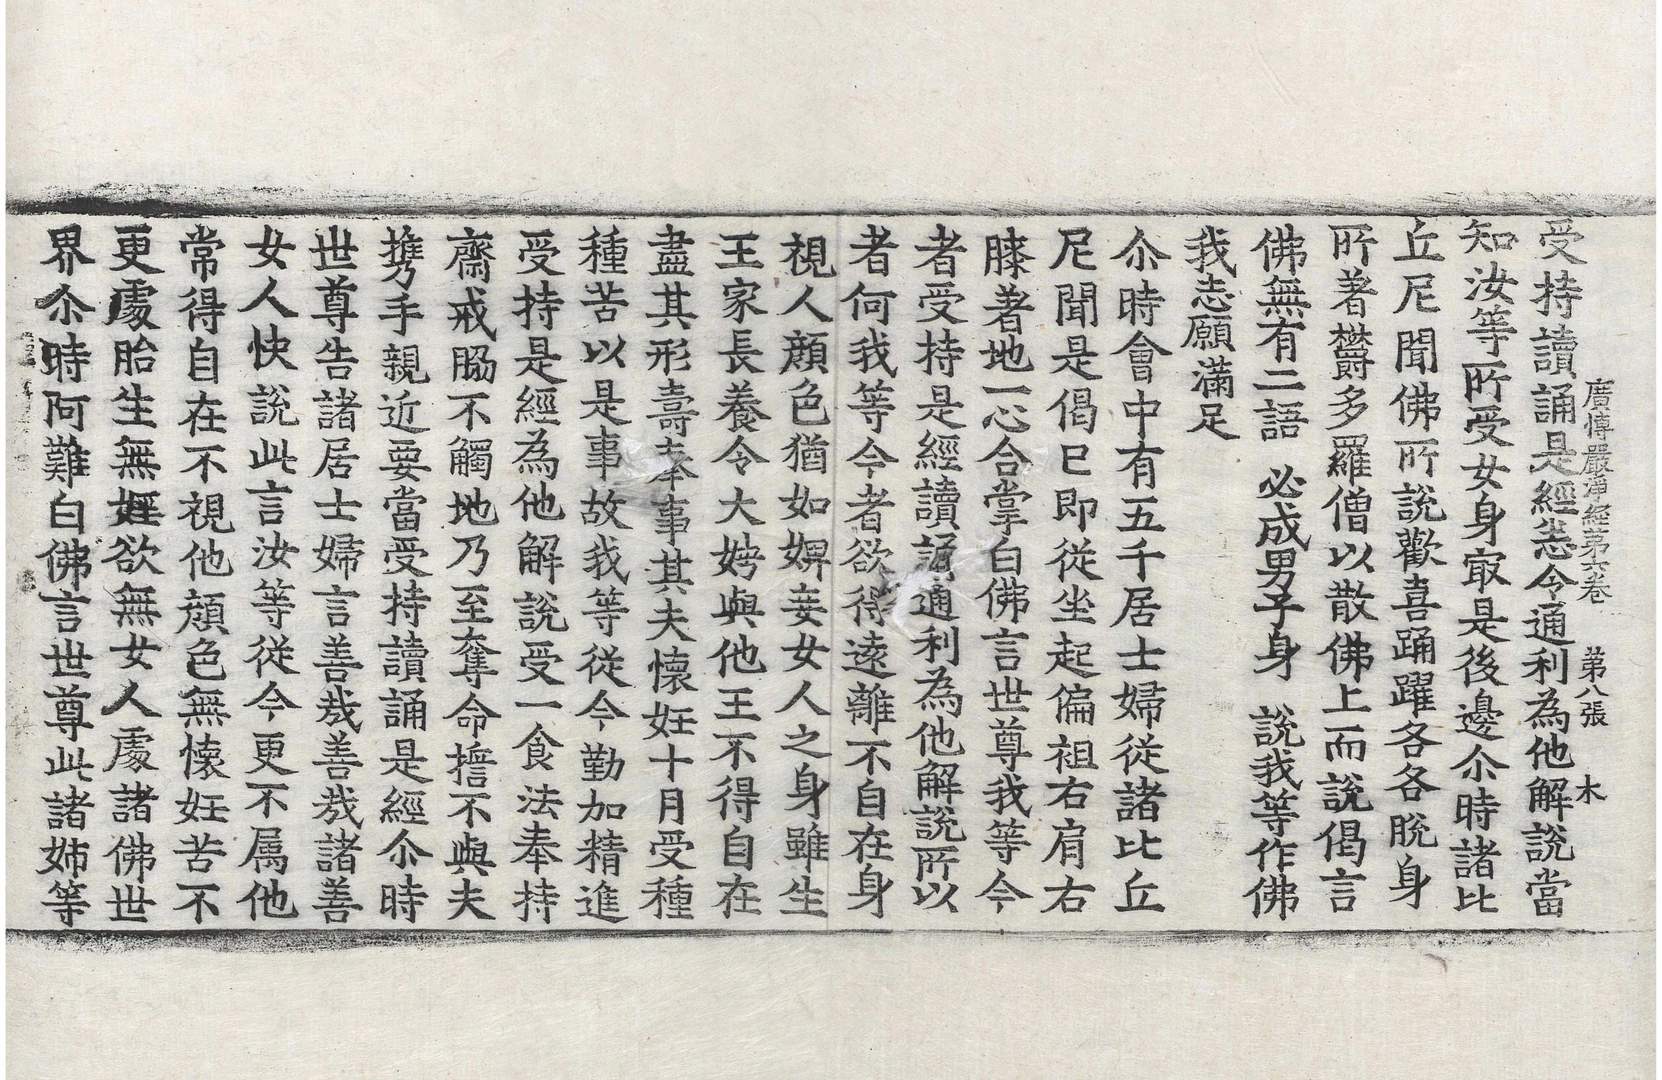 廣愽嚴淨經第六卷 第八張 木
受持讀誦是經悉令通利為他解說當
知汝等所受女身㝡是後邊尒時諸比
丘尼聞佛所說歡喜踊躍各各脫身
所著欝多羅僧以散佛上而說偈言
佛無有二語 必成男子身 說我等作佛
我志願滿足
尒時會中有五千居士婦從諸比丘
尼聞是偈已即從坐起偏袒右肩右
膝著地一心合掌白佛言世尊我等今
者受持是經讀誦通利為他解說所以
者何我等今者欲得遠離不自在身
視人顔色猶如婢妾女人之身雖生
王家長養令大娉與他王不得自在
盡其形壽奉事其夫懷妊十月受種
種苦以是事故我等從今勤加精進
受持是經為他解說受一食法奉持
齋戒脇不觸地乃至奪命擔不與夫
携手親近要當受持讀誦是經尒時
世尊告諸居士婦言善哉善哉諸善
女人快說此言汝等從今更不属他
常得自在不視他顔色無懷妊苦不
更處胎生無婬欲無女人處諸佛世
界尒時阿難白佛言世尊此諸姉等